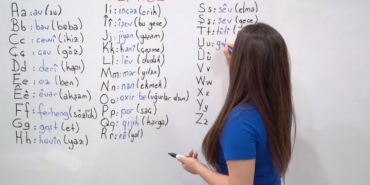 Aa: av (su)
Bb: bav (baba)
Cc: cêwî (ikiz)
Çç: çav (göz)
Dd: derî (kapı)
Ee: ez (ben)
Êê: êvar (akşam)
Ff: ferheng (sözlük)
Gg: goşt (et)
Hh: havîn (yaz)
Ii: incaz (erik)
Îî: îşev (bu gece)
Jj: jiyan (yaşam)
Kk: kanî (çeşme)
Ll: lêv (dudak)
Mm: mar (yılan)
Nn: nan (ekmek)
Oo: oxir be (uğurlar olsun)
Pp: por (saç)
Qq: qijik (karga)
Rr: rê (yol)
Ss: sêv (elma)
Şş: şev (gece)
Tt: tilî
Uu:
Ûû
Vv
Ww
Xx
Yy
Zz